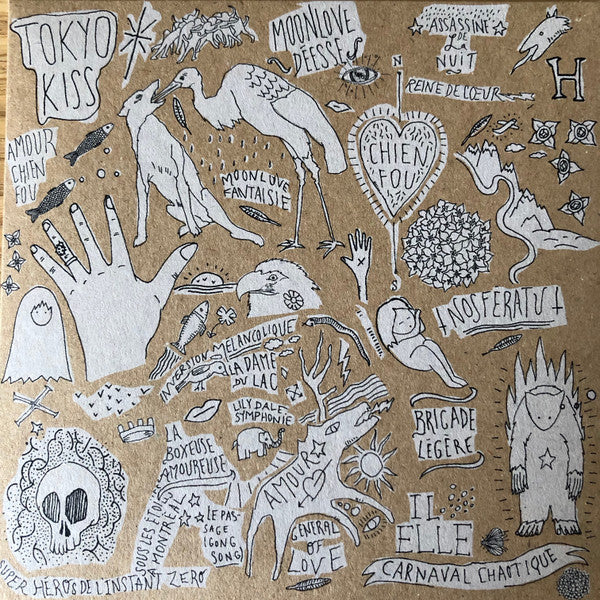 TOKYO
KISS
MOONLOVE
DÉESSE
ASSASSINE
DE LA
NUIT
H
REINE DE CŒUR
N
AMOUR
CHIEN
FOU
CHIEN
FOU
MOONLOVE
FANTAISIE
S
NOSFERATU
INVERSION MÉLANCOLIQUE
LA DAME
DU LAC
LILY DALE
SYMPHONIE
LA
BOXEUSE
AMOUREUSE
BRIGADE
LÉGÈRE
AMOUR
SOUS LES ÉTOILES
MONTRÉAL
LE PAS-
SAGE
(GONG
SONG)
GENERAL
OF
LOVE
IL
ELLE
CARNAVAL CHAOTIQUE
SUPER HÉROS DE L'INSTANT ZERO